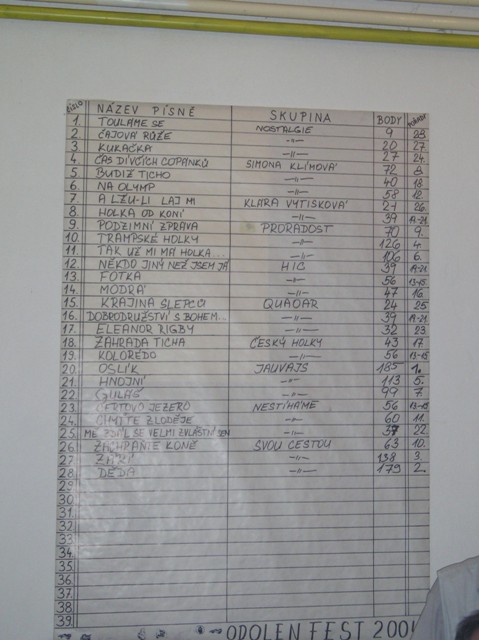 ČÍSLO NÁZEV PÍSNĚ SKUPINA BODY POŘADÍ
1. TOULÁME SE NOSTALGIE 9 28
2 ČAJOVÁ RŮŽE -"- 20 27
3 KUKAČKA -"- 27 24.
4. ČAS DÍVČÍCH COPÁNKŮ SIMONA KLÍMOVÁ 72 8.
5. BUDIŽ TICHO -"- 40 18
6. NA OLYMP -"- 58 12.
7. A LŽU-LI LAJ MI KLÁRA VYTISKOVÁ 21 26.
8. HOLKA OD KONÍ -"- 39 19-21
9. PODZIMNÍ ZPRÁVA PRORADOST 70 9.
10. TRAMPSKÉ HOLKY -"- 126 4.
11. TAK UŽ MI MÁ HOLKA... -"- 106 6.
12. NĚKDO JINÝ NEŽ JSEM JÁ HIC 39 19-21
13. FOTKA -"- 56 13-15
14. MODRÁ -"- 47 16.
15. KRAJINA SLEPCŮ QUAOAR 24 25
16. DOBRODRUŽSTVÍ S BOHEM.. -"- 39 19-21
17. ELEANOR RIGBY -"- 32 23
18. ZAHRADA TICHA ČESKÝ HOLKY 43 17
19. KOLOREDO -"- 56 13-15
20. OSLÍK JAUVAJS 185 1.
21. HNOJNÍ -"- 113 5.
22 GULÁŠ -"- 99 7.
23 ČERTOVO JEZERO NESTÍHÁME 56 13-15
24 CHYŤTE ZLODĚJE -"- 60 11.
25 MĚ ZDÁL SE VELMI ZVLÁŠTNÍ SEN -"- 37 22.
26 ZACHRAŇTE KONĚ SVOU CESTOU 63 10.
27. -"- 138 3.
28. DĚDA -"- 179 2.
29.
30.
31.
32.
33.
34.
35.
36.
37.
38.
39.
ODOLEN FEST